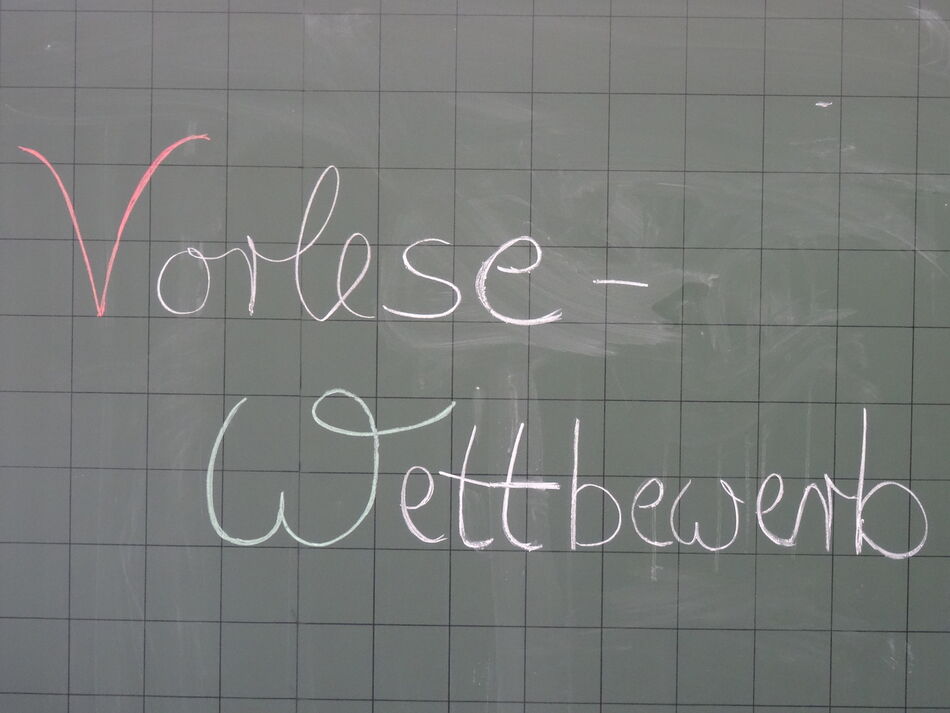 Vorlese-
Wettbewerb